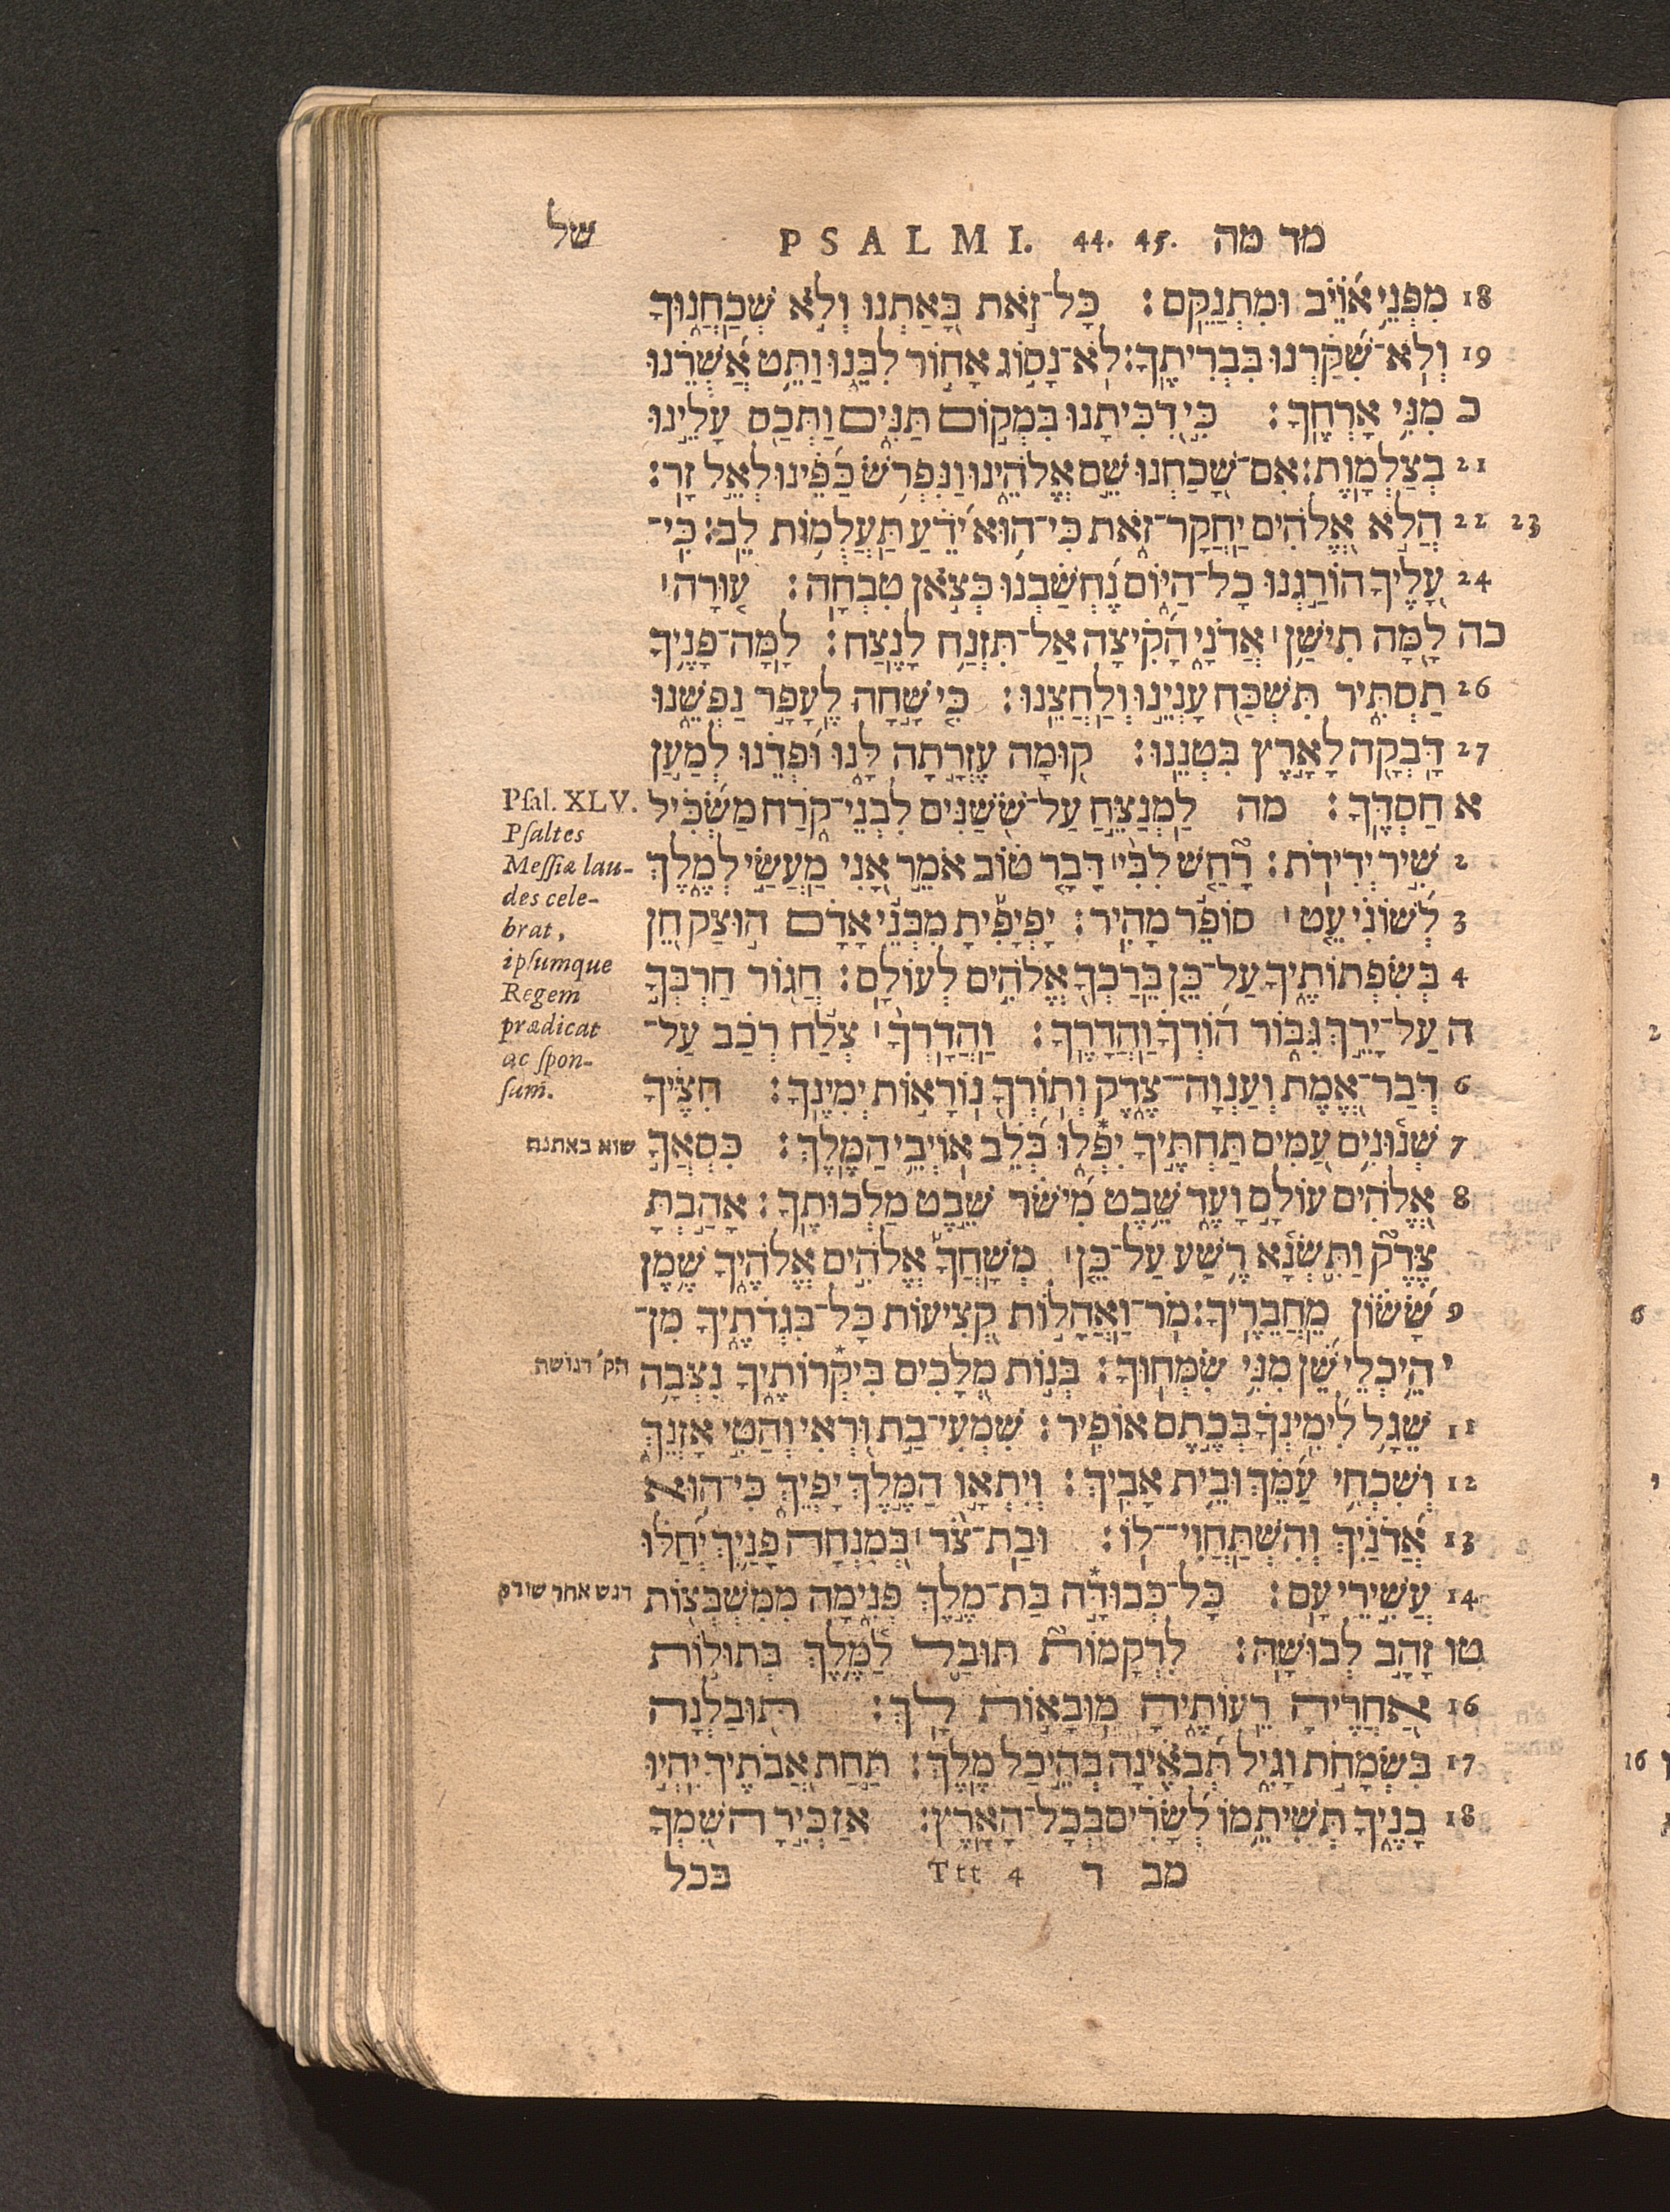 מד מה PSALMI. 44. 45. של
18 מִפְּנֵי אוֹיֵב וּמִתְנַקֵּם: כָּל־זֹאת בָּאַתְנוּ וְלֹא שְׁכַחֲנוּךָ
19 וְלֹא־שִׁקַּרְנוּ בִּבְרִיתֶךָ: לֹא־נָסוֹג אָחוֹר לִבֵּנוּ וַתֵּט אֲשֻׁרֵנוּ
כ מִנִּי אָרְחֶךָ: כִּי דִכִּיתָנוּ בִּמְקוֹם תַּנִּים וַתְּכַס עָלֵינוּ
21 בְצַלְמָוֶת: אִם־שָׁכַחְנוּ שֵׁם אֱלֹהֵינוּ וַנִּפְרֹשׂ כַּפֵּינוּ לְאֵל זָר:
22 23 הֲלֹא אֱלֹהִים יַחֲקָר־זֹאת כִּי־הוּא יֹדֵעַ תַּעֲלֻמוֹת לֵב: כִּי־
24 עָלֶיךָ הֹרַגְנוּ כָל־הַיּוֹם נֶחְשַׁבְנוּ כְּצֹאן טִבְחָה: עוּרָה׀
כה לָמָּה תִישַׁן׀ אֲדֹנָי הָקִיצָה אַל־תִּזְנַח לָנֶצַח: לָמָּה־פָנֶיךָ
26 תַסְתִּיר תִּשְׁכַּח עָנְיֵנוּ וְלַחֲצֵנוּ: כִּי שָׁחָה לֶעָפָר נַפְשֵׁנוּ
27 דָּבְקָה לָאָרֶץ בִּטְנֵנוּ: קוּמָה עֶזְרָתָה לָּנוּ וּפְדֵנוּ לְמַעַן
א חַסְדֶּךָ: מה לַמְנַצֵּחַ עַל־שֹׁשַׁנִּים לִבְנֵי־קֹרַח מַשְׂכִּיל
Psal. XLV.
Psaltes
Messiæ lau-
des cele-
brat,
ipsumque
Regem
prædicat
ac spon-
sum̄.
2 שִׁיר יְדִידֹת: רָחַשׁ לִבִּי׀ דָּבָר טוֹב אֹמֵר אָנִי מַעֲשַׂי לְמֶלֶךְ
3 לְשׁוֹנִי עֵט׀ סוֹפֵר מָהִיר: יָפְיָפִיתָ מִבְּנֵי אָדָם הוּצַק חֵן
4 בְּשִׂפְתוֹתֶיךָ עַל־כֵּן בֵּרַכְךָ אֱלֹהִים לְעוֹלָם: חֲגוֹר חַרְבְּךָ
ה עַל־יָרֵךְ גִּבּוֹר הוֹדְךָ וַהֲדָרֶךָ: וַהֲדָרְךָ׀ צְלַח רְכַב עַל־
6 דְּבַר־אֱמֶת וְעַנְוָה־צֶדֶק וְתוֹרְךָ נוֹרָאוֹת יְמִינֶךָ: חִצֶּיךָ
7 שְׁנוּנִים עַמִּים תַּחְתֶּיךָ יִפְּלוּ בְּלֵב אוֹיְבֵי הַמֶּלֶךְ: כִּסְאֲךָ
שוא באתנח
8 אֱלֹהִים עוֹלָם וָעֶד שֵׁבֶט מִישֹׁר שֵׁבֶט מַלְכוּתֶךָ: אָהַבְתָּ
צֶּדֶק וַתִּשְׂנָא רֶשַׁע עַל־כֵּן׀ מְשָׁחֲךָ אֱלֹהִים אֱלֹהֶיךָ שֶׁמֶן
9 שָׂשׂוֹן מֵחֲבֵרֶיךָ: מֹר־וַאֲהָלוֹת קְצִיעוֹת כָּל־בִּגְדֹתֶיךָ מִן־
י הֵיכְלֵי שֵׁן מִנִּי שִׂמְּחוּךָ: בְּנוֹת מְלָכִים בִּיקְּרוֹתֶיךָ נִצְּבָה
הק' דגושה
11 שֵׁגַל לִימִינְךָ בְּכֶתֶם אוֹפִיר: שִׁמְעִי־בַת וּרְאִי וְהַטִּי אָזְנֵךְ
12 וְשִׁכְחִי עַמֵּךְ וּבֵית אָבִיךְ: וְיִתְאָו הַמֶּלֶךְ יָפְיֵךְ כִּי־הוּא
13 אֲדֹנַיִךְ וְהִשְׁתַּחֲוִי־לוֹ: וּבַת־צֹר׀ בְּמִנְחָה פָּנַיִךְ יְחַלּוּ
14 עֲשִׁירֵי עָם: כָּל־כְּבוּדָּה בַת־מֶלֶךְ פְּנִימָה מִמִּשְׁבְּצוֹת
דגש אחר שורק
טו זָהָב לְבוּשָׁהּ: לִרְקָמוֹת תּוּבַל לַמֶּלֶךְ בְּתוּלוֹת
16 אַחֲרֶיהָ רֵעוֹתֶיהָ מוּבָאוֹת לָךְ: תּוּבַלְנָה
17 בִּשְׂמָחֹת וָגִיל תְּבֹאֶינָה בְּהֵיכַל מֶלֶךְ: תַּחַת אֲבֹתֶיךָ יִהְיוּ
18 בָנֶיךָ תְּשִׁיתֵמוֹ לְשָׂרִים בְּכָל־הָאָרֶץ: אַזְכִּירָה שִׁמְךָ
מב ד Ttt 4 בכל